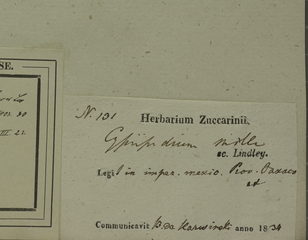 SE.
N. 101
Herbarium Zuccarinii.
Cypripedium molle
sc. Lindley.
Legit in imper. mexic. Prov. Oaxaca
et
Communicavit B. de Karwinski anno 1834